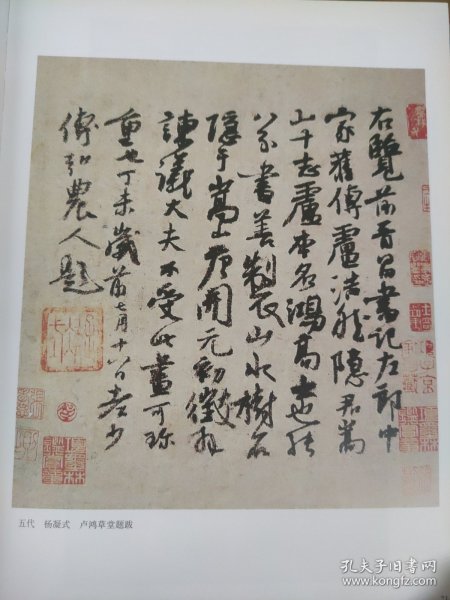 右覽前晋昌書記左郎中
家舊傳盧浩然隱君嵩
山十志盧本名鴻高士也能
八分書善製山水樹石
隱于嵩山唐開元初徵拜
諫議大夫不受此畫可珍
重也丁未歲前七月十八日老少
傅弘農人題
五代 杨凝式 卢鸿草堂题跋
孔夫子旧书网
www.kongfz.com